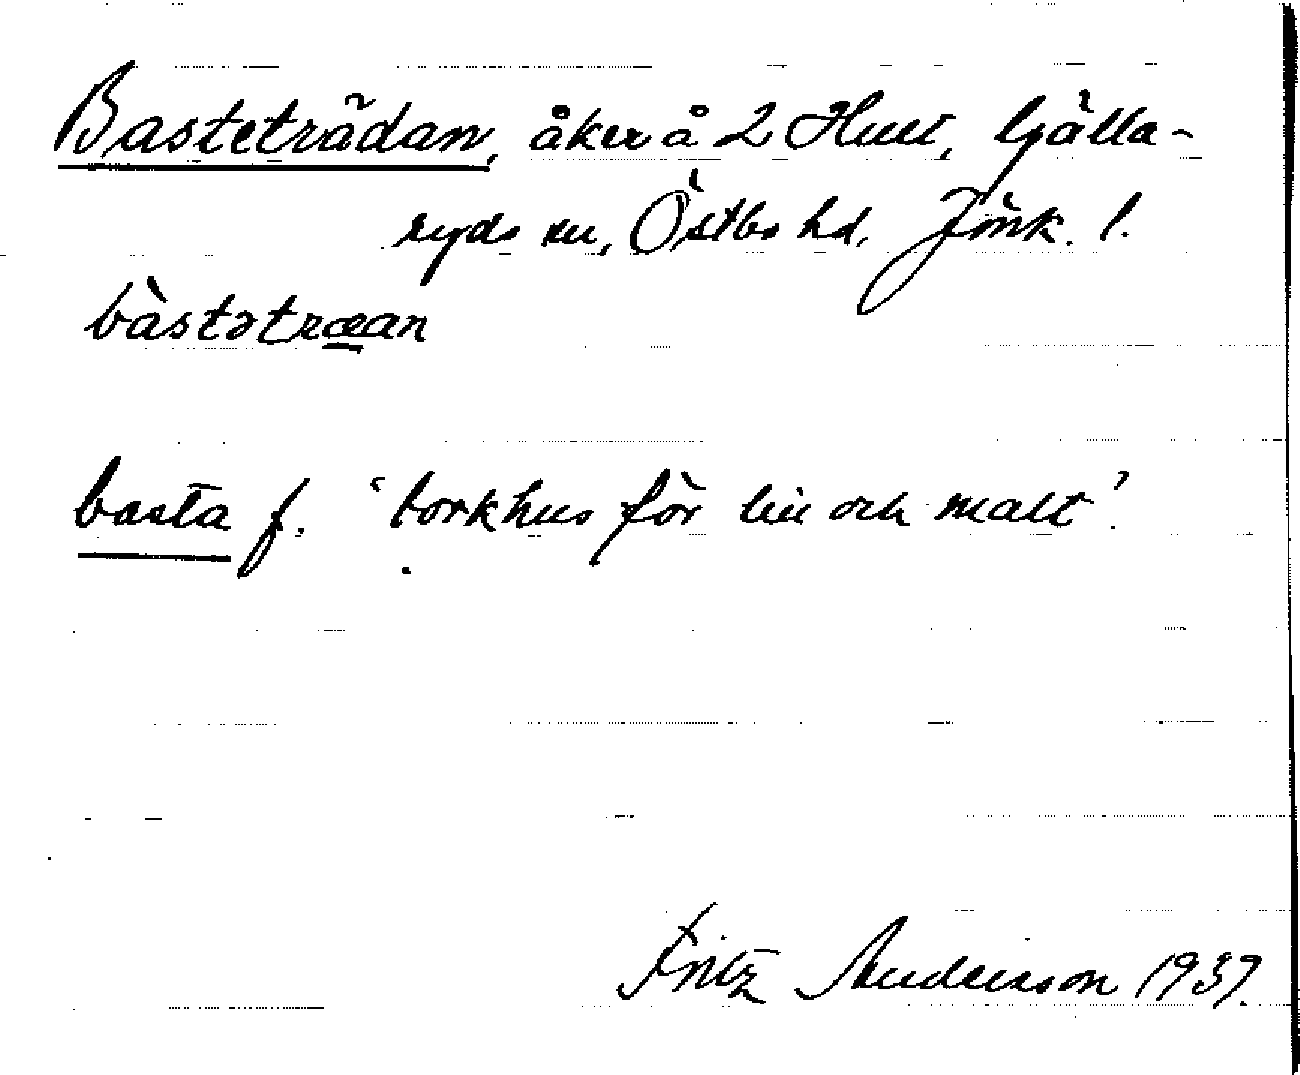 Basteträdan, åker å 2 Hult, Gälla-
ryds sn, Östbo hd, Jönk. l.
bàstətræan
basta f. 'torkhus för lin och malt'.
Fritz Andersson 1937.